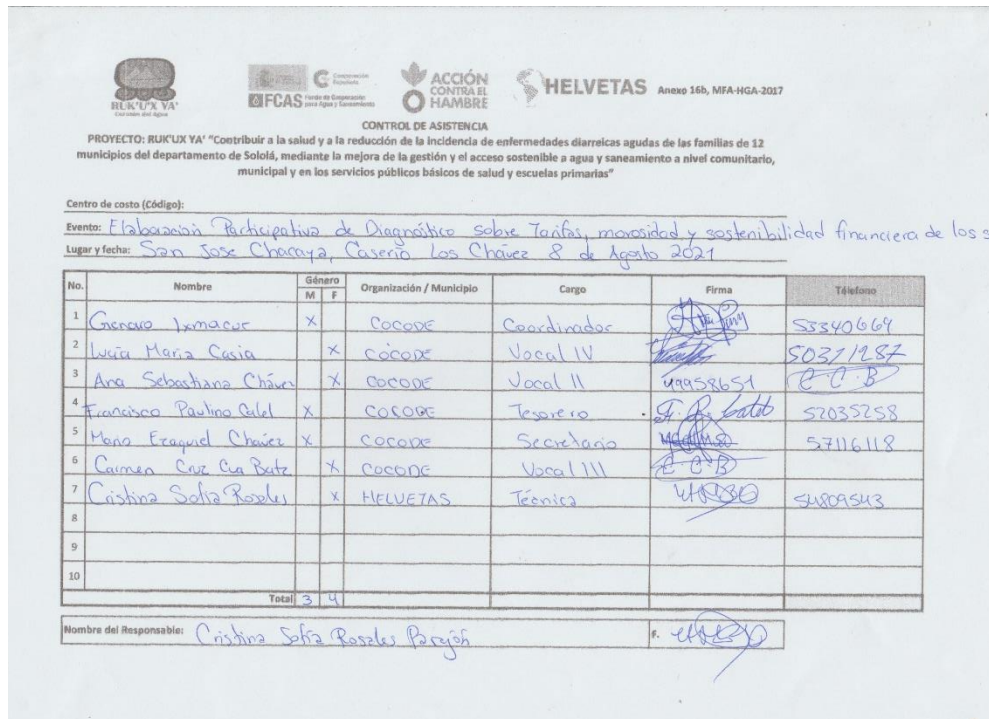 RUK'U'X YA'
Corazón del Agua
Cooperación Española
FCAS Fondo de Cooperación para Agua y Saneamiento
ACCIÓN CONTRA EL HAMBRE
HELVETAS Anexo 16b, MFA-HGA-2017
CONTROL DE ASISTENCIA
PROYECTO: RUK'UX YA' "Contribuir a la salud y a la reducción de la incidencia de enfermedades diarreicas agudas de las familias de 12
municipios del departamento de Sololá, mediante la mejora de la gestión y el acceso sostenible a agua y saneamiento a nivel comunitario,
municipal y en los servicios públicos básicos de salud y escuelas primarias"
Centro de costo (Código):
Evento: Elaboración Participativa de Diagnóstico sobre Tarifas, morosidad y sostenibilidad financiera de los s
Lugar y fecha: San Jose Chacaya, Caserio Los Chávez 8 de Agosto 2021
No. Nombre Género M F Organización / Municipio Cargo Firma Télefono
1 Genaro Ixmacur X COCODE Coordinador 55340669
2 Lucia Maria Casia X COCODE Vocal IV 50371287
3 Ana Sebastiana Chávez X COCODE Vocal II 49958651 C C B
4 Francisco Paulino Calel X COCODE Tesorero 52035258
5 Mario Ezequiel Chavez X COCODE Secretario 57116118
6 Carmen Cruz Cua Batz X COCODE Vocal III C C B
7 Cristina Sofia Rosales X HELVETAS Técnica 54809543
8
9
10
Total 3 4
Nombre del Responsable: Cristina Sofía Rosales F.